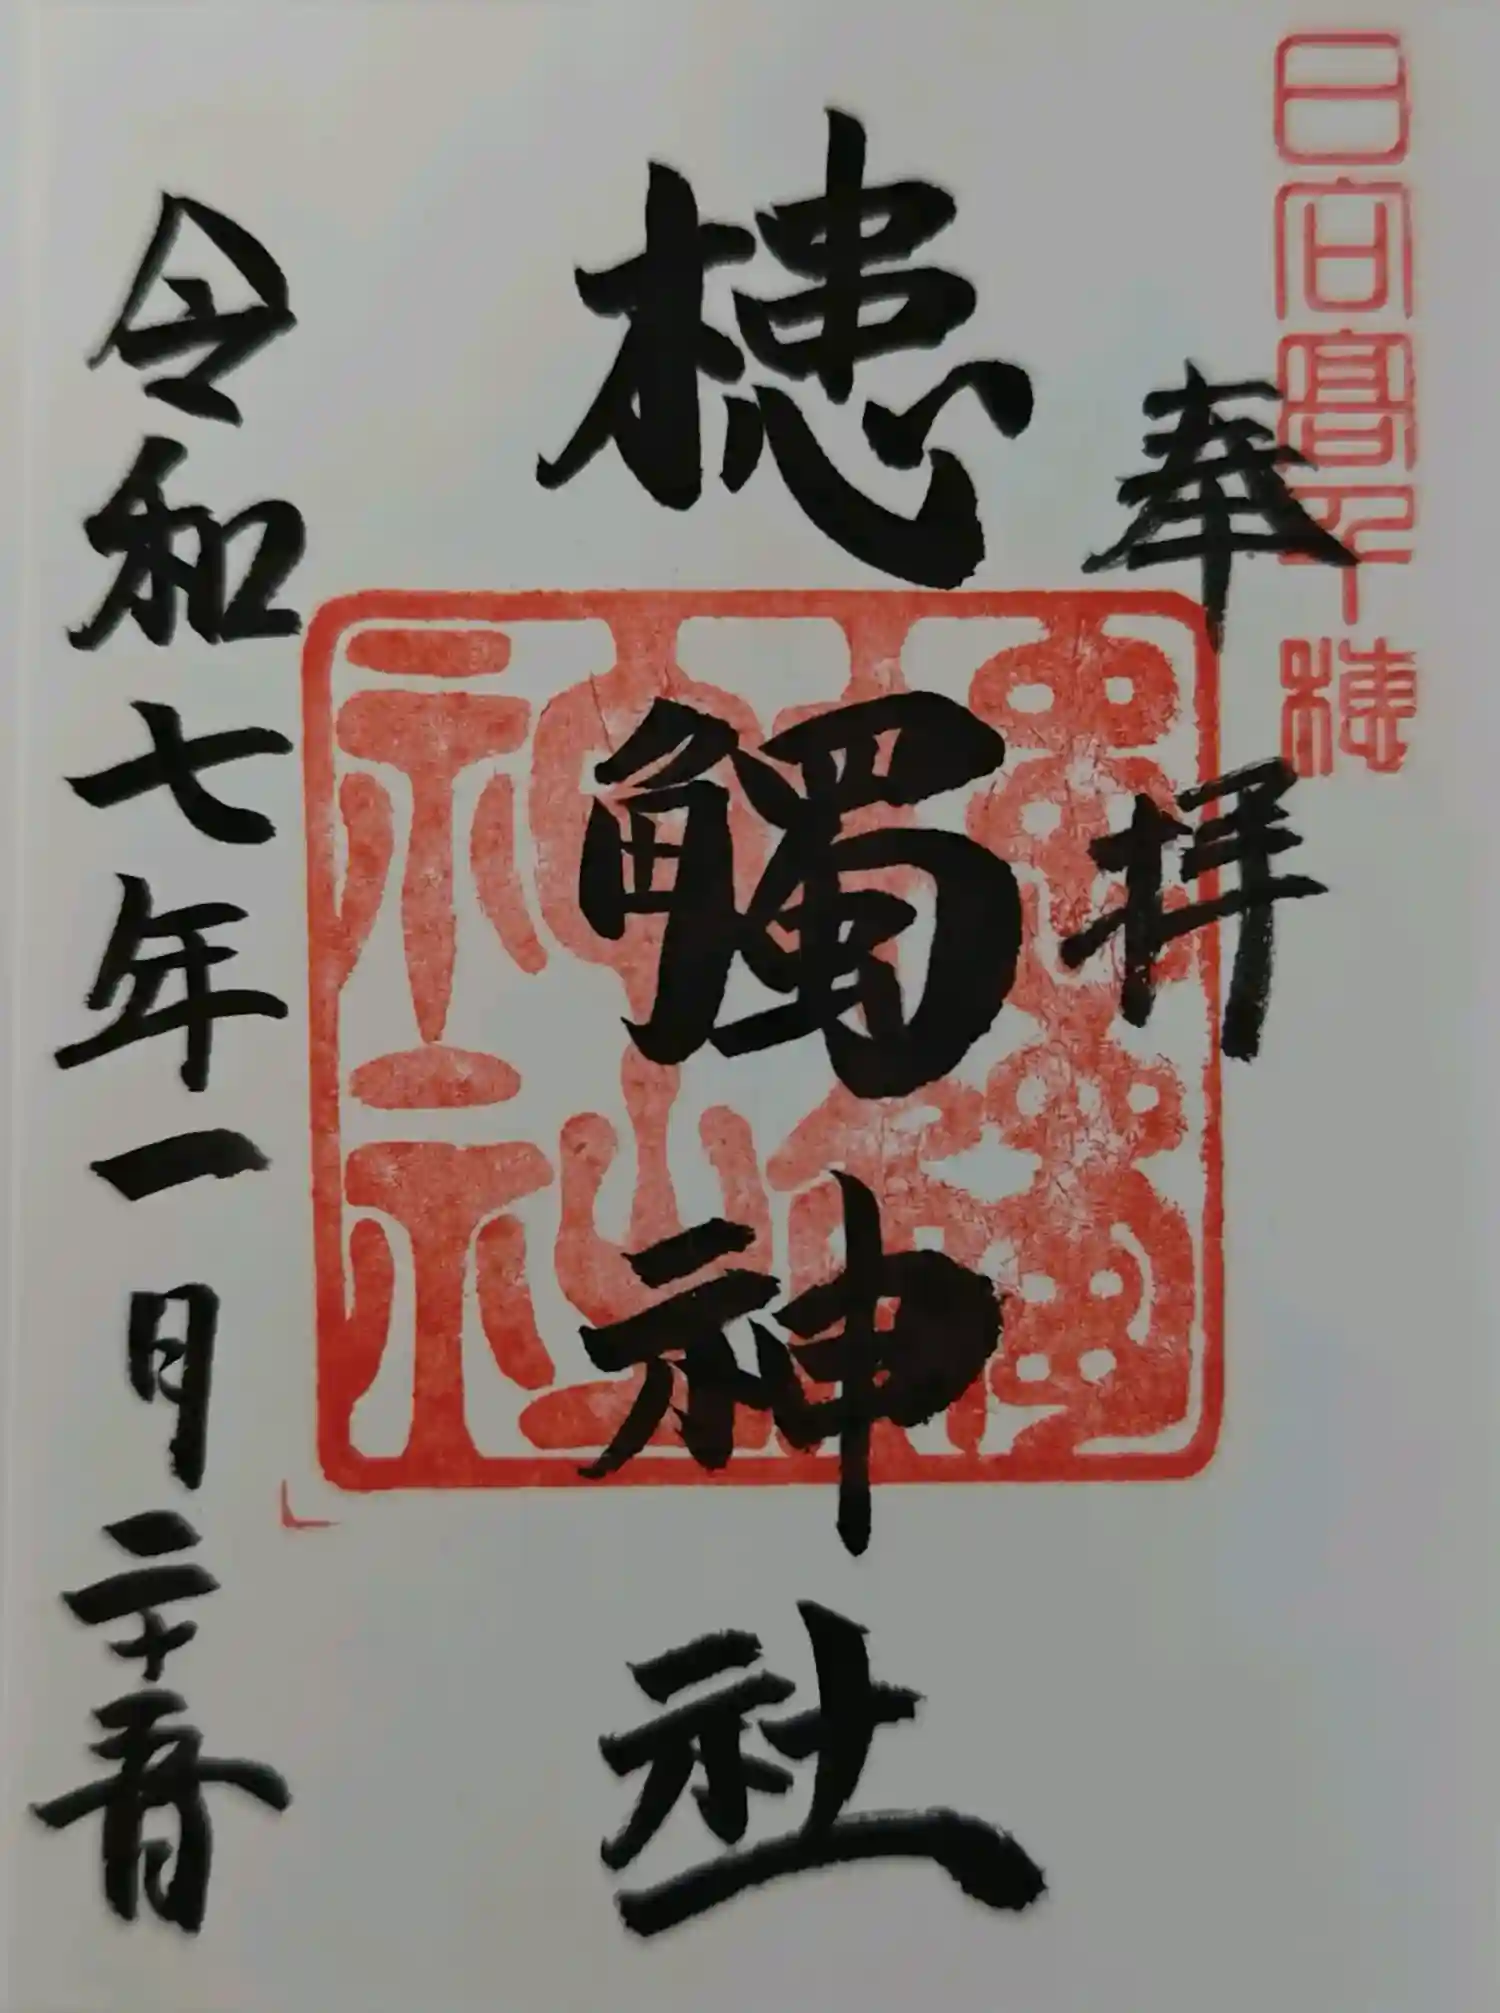 日向髙千穂
奉拝
槵觸神社
槵觸神社
令和七年一月二十五日